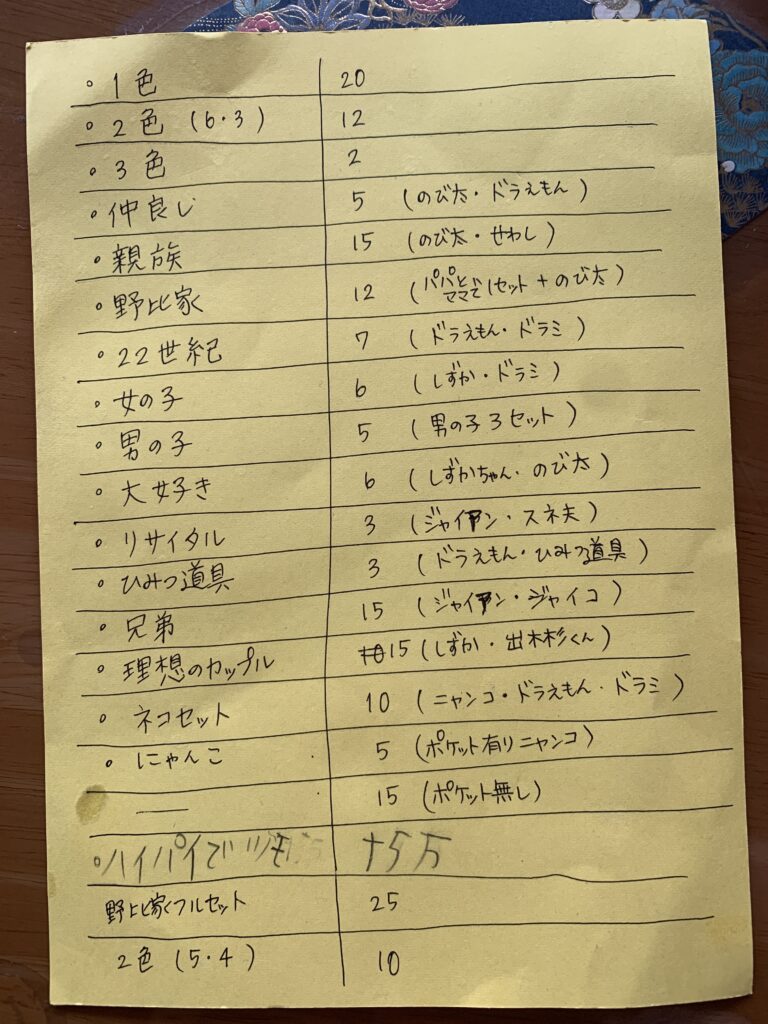 ・1色 20
・2色 (6・3) 12
・3色 2
・仲良し 5 (のび太・ドラえもん)
・親族 15 (のび太・せわし)
・野比家 12 (パパとママで1セット+のび太)
・22世紀 7 (ドラえもん・ドラミ)
・女の子 6 (しずか・ドラミ)
・男の子 5 (男の子3セット)
・大好き 6 (しずかちゃん・のび太)
・リサイタル 3 (ジャイアン・スネ夫)
・ひみつ道具 3 (ドラえもん・ひみつ道具)
・兄弟 15 (ジャイアン・ジャイコ)
・理想のカップル 15 (しずか・出木杉くん)
・ネコセット 10 (ニャンコ・ドラえもん・ドラミ)
・にゃんこ 5 (ポケット有りニャンコ)
— 15 (ポケット無し)
・ハイパイで +5万
野比家フルセット 25
2色 (5・4) 10